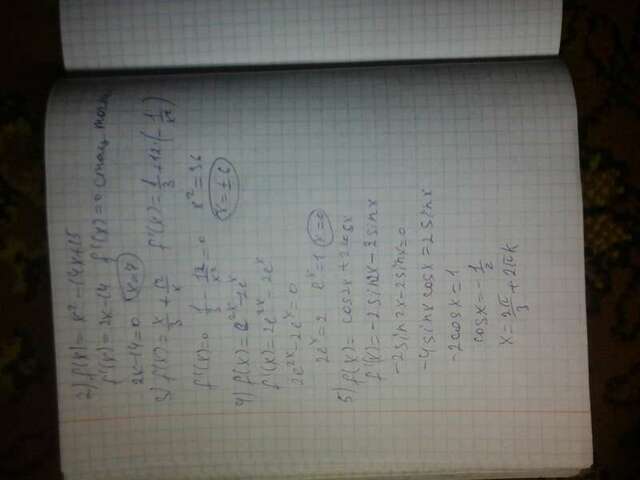 2) f(x) = x² - 14x + 15
f'(x) = 2x - 14 f'(x) = 0 стац. точк
2x - 14 = 0 x = 7
3) f'(x) = x/3 + 12/x f'(x) = 1/3 + 12·(-1/x²)
f'(x) = 0 1/3 - 12/x² = 0 x² = 36
x = ±6
4) f(x) = e^2x - 2e^x
f'(x) = 2e^2x - 2e^x
2e^2x - 2e^x = 0
2e^x = 2 e^x = 1 x = 0
5) f(x) = cos2x + 2cosx
f'(x) = -2sin2x - 2sinx
-2sin2x - 2sinx = 0
-4sinx cosx = 2sinx
-2cosx = 1
cosx = -1/2
x = 2π/3 + 2πk